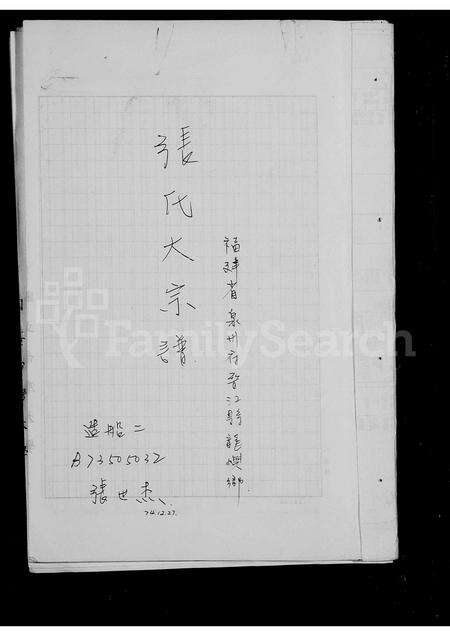 福建省泉州府晉江縣龍興鄉
張氏大宗譜
造船二
A73505032
張世杰
74.12.27.
FamilySearch